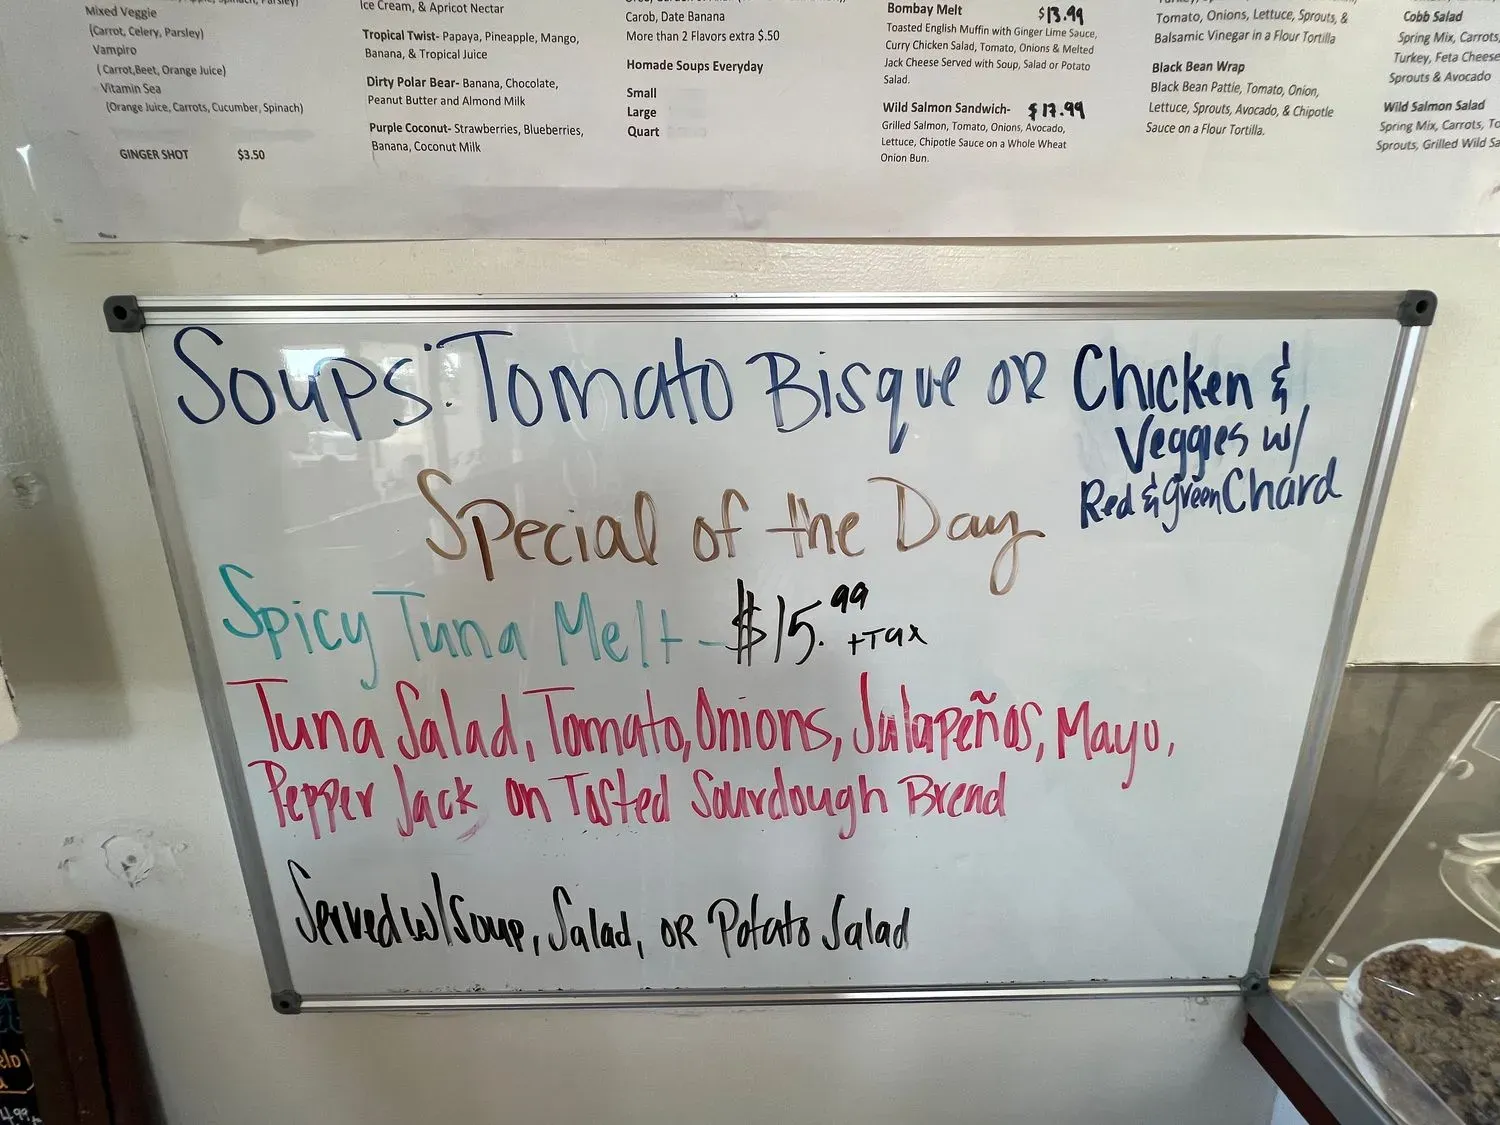 Mixed Veggie
(Carrot, Celery, Parsley)
Vampiro
( Carrot,Beet, Orange Juice)
Vitamin Sea
(Orange Juice, Carrots, Cucumber, Spinach)
GINGER SHOT $3.50
Ice Cream, & Apricot Nectar
Tropical Twist- Papaya, Pineapple, Mango,
Banana, & Tropical Juice
Dirty Polar Bear- Banana, Chocolate,
Peanut Butter and Almond Milk
Purple Coconut- Strawberries, Blueberries,
Banana, Coconut Milk
Carob, Date Banana
More than 2 Flavors extra $.50
Homade Soups Everyday
Small
Large
Quart
Bombay Melt $13.99
Toasted English Muffin with Ginger Lime Sauce,
Curry Chicken Salad, Tomato, Onions & Melted
Jack Cheese Served with Soup, Salad or Potato
Salad.
Wild Salmon Sandwich- $17.99
Grilled Salmon, Tomato, Onions, Avocado,
Lettuce, Chipotle Sauce on a Whole Wheat
Onion Bun.
Tomato, Onions, Lettuce, Sprouts, &
Balsamic Vinegar in a Flour Tortilla
Black Bean Wrap
Black Bean Pattie, Tomato, Onion,
Lettuce, Sprouts, Avocado, & Chipotle
Sauce on a Flour Tortilla.
Cobb Salad
Spring Mix, Carrots,
Turkey, Feta Cheese
Sprouts & Avocado
Wild Salmon Salad
Spring Mix, Carrots, To
Sprouts, Grilled Wild Sa
Soups: Tomato Bisque OR Chicken &
Veggies w/
Red & green Chard
Special of the Day
Spicy Tuna Melt - $15.99 +Tax
Tuna Salad, Tomato, Onions, Jalapeños, Mayo,
Pepper Jack on Tosted Sourdough Bread
Served w/ Soup, Salad, OR Potato Salad